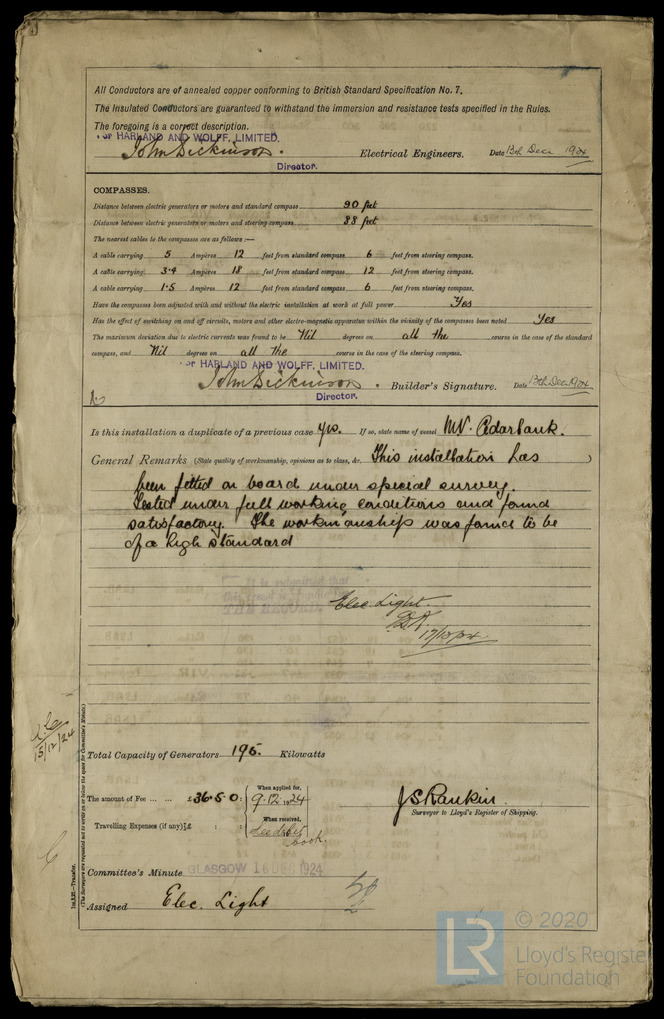 All Conductors are of annealed copper conforming to British Standard Specification No. 7.
The Insulated Conductors are guaranteed to withstand the immersion and resistance tests specified in the Rules.
The foregoing is a correct description.
For HARLAND AND WOLFF, LIMITED.
John Dickinson. Electrical Engineers. Date 13th Dec 1924
Director.
COMPASSES.
Distance between electric generators or motors and standard compass 90 feet
Distance between electric generators or motors and steering compass 88 feet
The nearest cables to the compasses are as follows :—
A cable carrying 5 Ampères 12 feet from standard compass 6 feet from steering compass.
A cable carrying 3.4 Ampères 18 feet from standard compass 12 feet from steering compass.
A cable carrying 1.5 Ampères 12 feet from standard compass 6 feet from steering compass.
Have the compasses been adjusted with and without the electric installation at work at full power Yes
Has the effect of switching on and off circuits, motors and other electro-magnetic apparatus within the vicinity of the compasses been noted Yes
The maximum deviation due to electric currents was found to be Nil degrees on all the course in the case of the standard
compass, and Nil degrees on all the course in the case of the steering compass.
For HARLAND AND WOLFF, LIMITED.
John Dickinson. Builder's Signature. Date 13th Dec 1924
Director.
Is this installation a duplicate of a previous case yes. If so, state name of vessel M.V. Cedarbank.
General Remarks (State quality of workmanship, opinions as to class, &c. This installation has
been fitted on board under special survey.
Tested under full working conditions and found
satisfactory. The workmanship was found to be
of a high standard
Elec. Light.
17/12/24
15/12/24
Total Capacity of Generators 195. Kilowatts
The amount of Fee ... ... £36.5.0: When applied for, 9.12.1924
When received,
Travelling Expenses (if any) £ : :
book.
J S Rankin.
Surveyor to Lloyd's Register of Shipping.
Committee's Minute GLASGOW 16 DEC 1924
Assigned Elec. Light
(The Surveyors are requested not to write on or below the space for Committee's Minute.)
© 2020
LR Lloyd's Register
Foundation